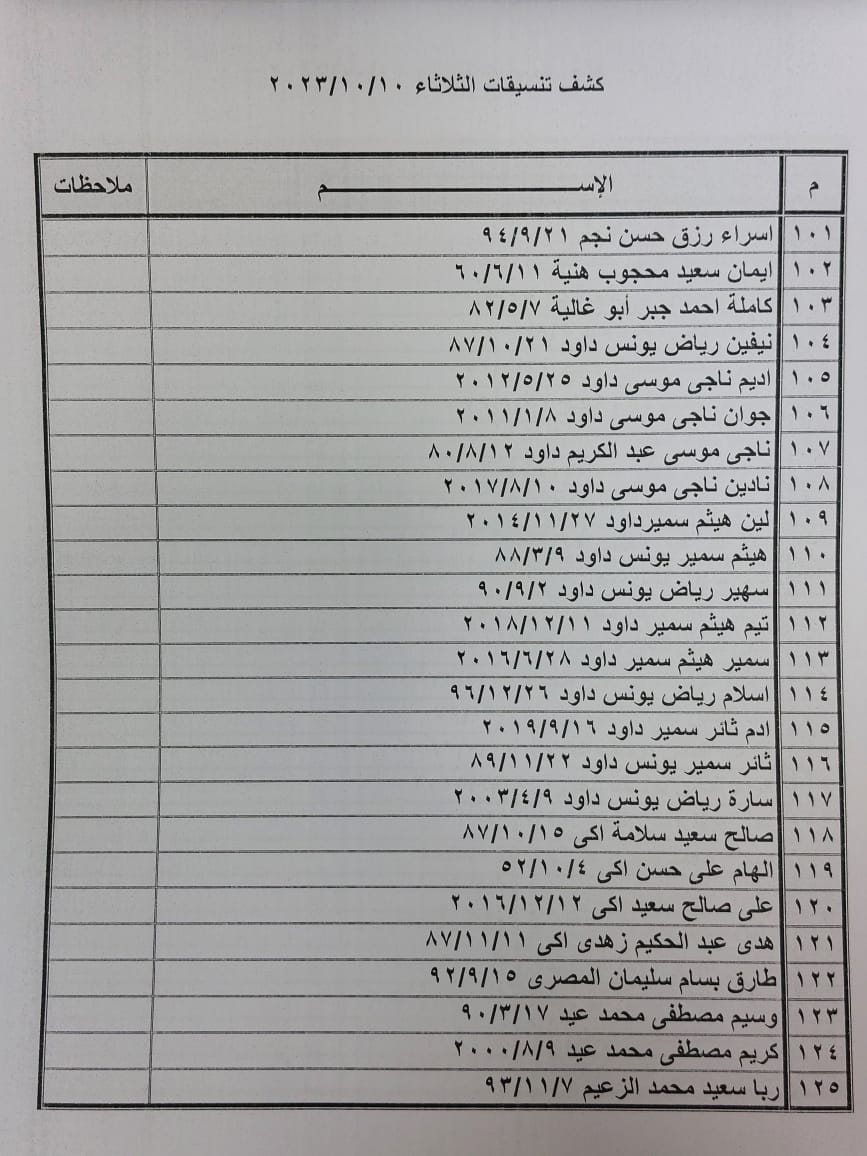 كشف تنسيقات الثلاثاء ٢٠٢٣/١٠/١٠
م الإســـــــــــم ملاحظات
١٠١ اسراء رزق حسن نجم ٩٤/٩/٢١
١٠٢ ايمان سعيد محجوب هنية ٦٠/٦/١١
١٠٣ كاملة احمد جبر أبو غالية ٨٢/٥/٧
١٠٤ نيفين رياض يونس داود ٨٧/١٠/٢١
١٠٥ اديم ناجى موسى داود ٢٠١٢/٥/٢٥
١٠٦ جوان ناجى موسى داود ٢٠١١/١/٨
١٠٧ ناجى موسى عبد الكريم داود ٨٠/٨/١٢
١٠٨ نادين ناجى موسى داود ٢٠١٧/٨/١٠
١٠٩ لين هيثم سميرداود ٢٠١٤/١١/٢٧
١١٠ هيثم سمير يونس داود ٨٨/٣/٩
١١١ سهير رياض يونس داود ٩٠/٩/٢
١١٢ تيم هيثم سمير داود ٢٠١٨/١٢/١١
١١٣ سمير هيثم سمير داود ٢٠١٦/٦/٢٨
١١٤ اسلام رياض يونس داود ٩٦/١٢/٢٦
١١٥ ادم ثائر سمير داود ٢٠١٩/٩/١٦
١١٦ ثائر سمير يونس داود ٨٩/١١/٢٢
١١٧ سارة رياض يونس داود ٢٠٠٣/٤/٩
١١٨ صالح سعيد سلامة اكى ٨٧/١٠/١٥
١١٩ الهام على حسن اكى ٥٢/١٠/٤
١٢٠ على صالح سعيد اكى ٢٠١٦/١٢/١٢
١٢١ هدى عبد الحكيم زهدى اكى ٨٧/١١/١١
١٢٢ طارق بسام سليمان المصرى ٩٢/٩/١٥
١٢٣ وسيم مصطفى محمد عيد ٩٠/٣/١٧
١٢٤ كريم مصطفى محمد عيد ٢٠٠٠/٨/٩
١٢٥ ربا سعيد محمد الزعيم ٩٣/١١/٧